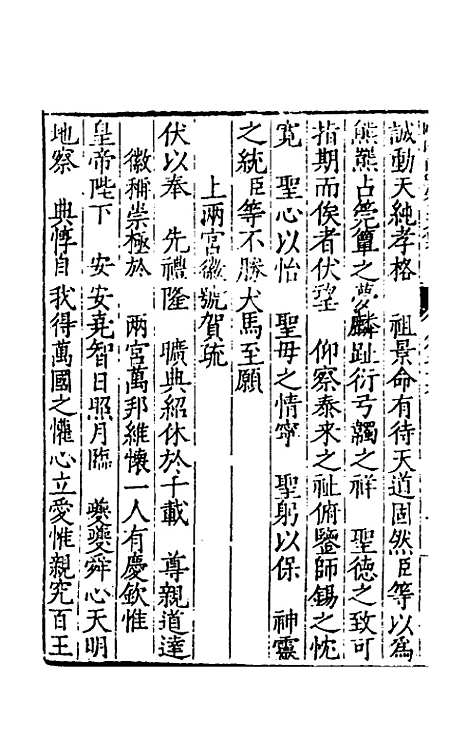 誠動天純孝格　祖景命有待天道固然臣等以為
熊羆占莞簟之夢麟趾衍弓韣之祥　聖德之致可
指期而俟者伏望　仰察泰來之祉俯鑒師錫之忱
寬　聖心以怡　聖母之情寧　聖躬以保　神靈
之統臣等不勝犬馬至願
上兩宮徽號賀疏
伏以奉　先禮隆　曠典紹休於千載　尊親道達
徽稱崇極於　兩宮萬邦維懷一人有慶欽惟
皇帝陛下　安安堯智日照月臨　夔夔舜心天明
地察　典惇自　我得萬國之懽心立愛惟親究百王